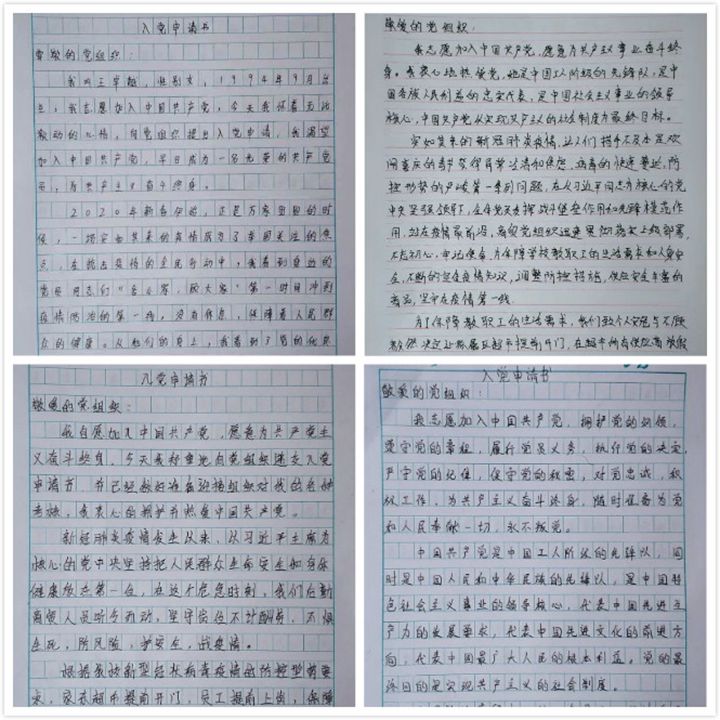 入党申请书
敬爱的党组织：
我叫王宇超，性别女，1994年9月出
生，我志愿加入中国共产党，今天我怀着无比
激动的心情，向党组织提出入党申请，我渴望
加入中国共产党，早日成为一名光荣的共产党
员，为共产主义奋斗终身。
2020年新春伊始，正是万家团圆的时
候，一场突如其来的疫情成为了举国关注的焦
点，在抗击疫情的全民行动中，我看到身边的
党员同志们“舍小家，顾大家”第一时间冲到
疫情防治的第一线，没有休息，保障着人民群
众的健康。从他们的身上，我看到了党的优良
敬爱的党组织：
我志愿加入中国共产党，愿意为共产主义事业奋斗终
身。我衷心地热爱党，她是中国工人阶级的先锋队，是中
国各族人民利益的忠实代表，是中国社会主义事业的领导
核心，中国共产党以实现共产主义的社会制度为最终目标。
突如其来的新冠肺炎疫情，让人们措手不及本是欢
闹喜庆的春节变得异常
控形势的严峻等一系列问题，在以习近平同志为核心的党
中央坚强领导下，全体党员发挥战斗堡垒作用和先锋模范作
用，站在疫情最前沿，商贸党组织迅速贯彻落实上级部署，
不忘初心，牢记使命，为保障学校教职工的生活需求和人身安
全，不断的宣传疫情知识，调整防控措施，供应安全丰富的
商品，坚守在疫情第一线。
为了保障教职工的生活需求，我们置个人安危于不顾
毅然决定让家属区超市提前开门，在超市所有供应商放假
入党申请书
敬爱的党组织：
我自愿加入中国共产党，愿意为共产党主
义奋斗终身，今天我郑重地向党组织递交入党
申请书，并已经做好准备迎接组织对我的各种
考验，我衷心的拥护并热爱中国共产党。
新冠肺炎疫情发生以来，以习近平主席为
核心的党中央坚持把人民群众生命安全和身体
健康放在第一位，在这个危急时刻，我们后勤
商贸人员听令而动，坚守岗位不计酬劳，不惧
生死，防风险，护安全，战疫情。
根据我校新型冠状病毒疫情的防控型需要
求，家衣超市提前开门，员工提前上岗，保障
入党申请书
敬爱的党组织：
我志愿加入中国共产党，拥护党的纲领，
遵守党的章程，履行党员义务，执行党的决定，
严守党的纪律，保守党的秘密，对党忠诚，积
极工作，为共产主义奋斗终身，随时准备为党
和人民奉献一切，永不叛党。
中国共产党是中国工人阶级的先锋队，同
时是中国人民和中华民族的先锋队，是中国特
色社会主义事业的领导核心，代表中国先进生
产力的发展要求，代表中国先进文化的前进方
向，代表中国最广大人民的根本利益。党的最
终目的是实现共产主义的社会制度。